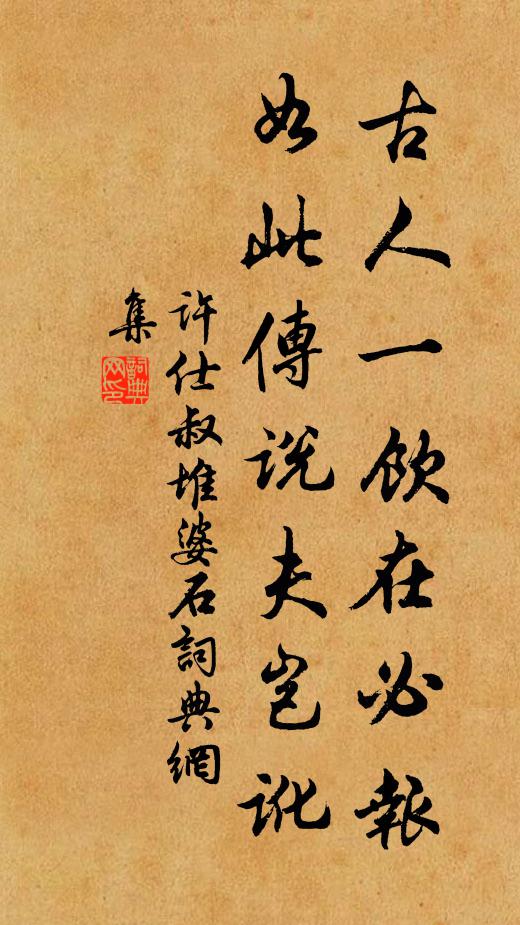 古人一飲在必報
如此傳說夫豈訛
許仕叔堆婆石詞典網
集
詞典
网印